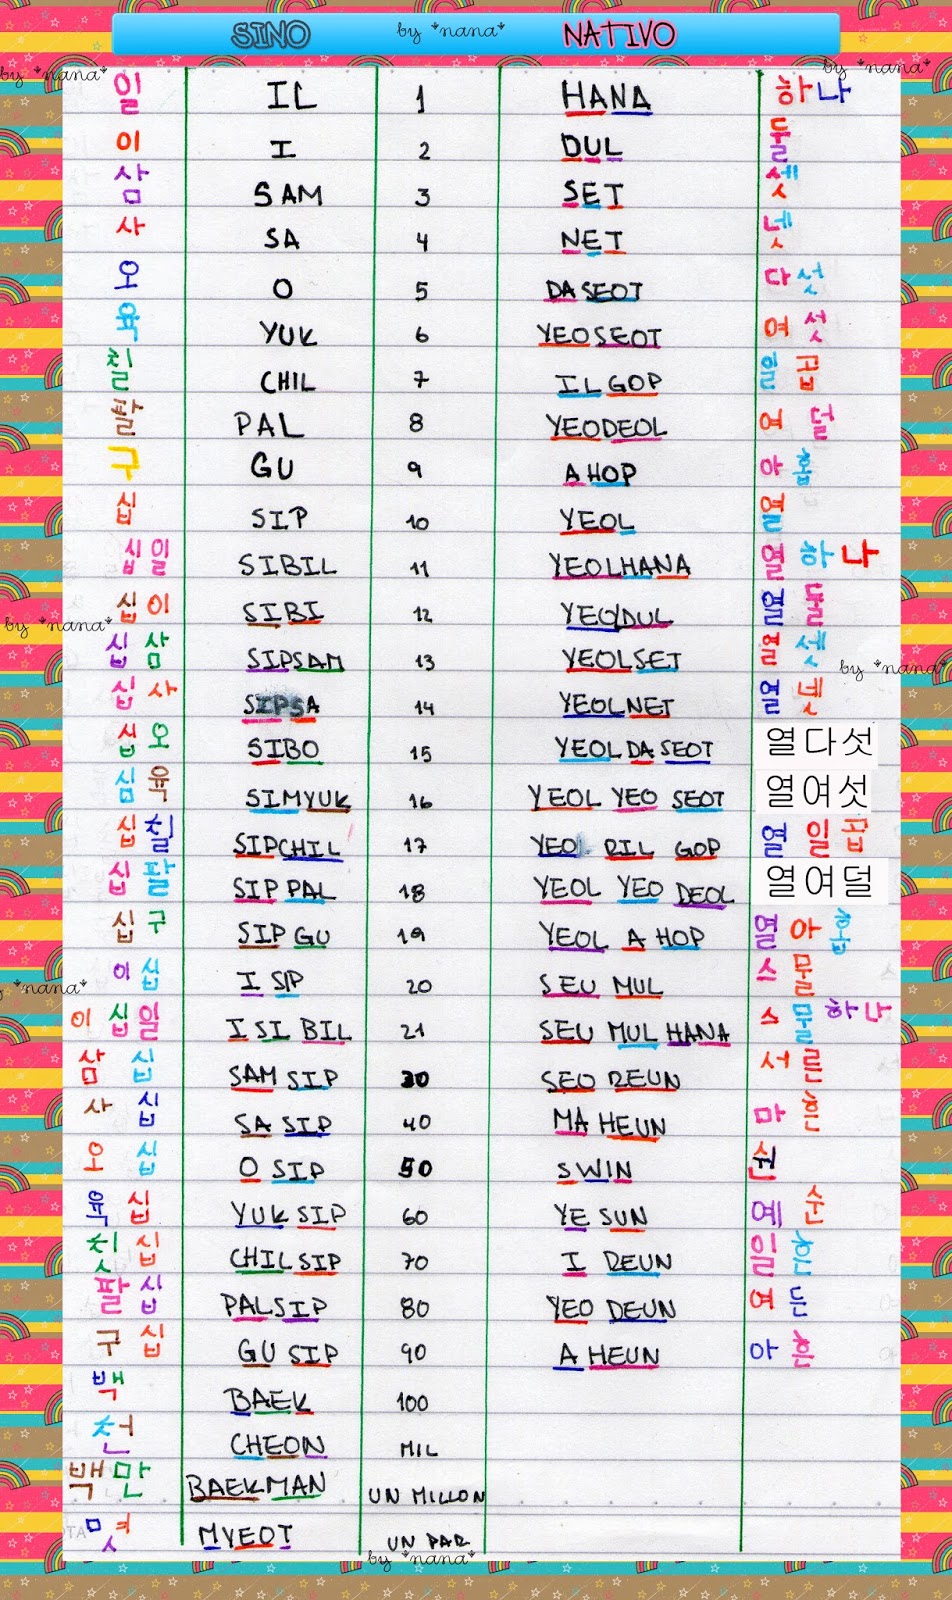 SINO by *nana* NATIVO
by *nana* by *nana*
일 IL 1 HANA 하나
이 I 2 DUL 둘
삼 SAM 3 SET 셋
사 SA 4 NET 넷
오 O 5 DA SEOT 다섯
육 YUK 6 YEOSEOT 여섯
칠 CHIL 7 ILGOP 일곱
팔 PAL 8 YEODEOL 여덜
구 GU 9 A HOP 아홉
십 SIP 10 YEOL 열
십일 SIBIL 11 YEOLHANA 열하나
십이 SIBI 12 YEOLDUL 열둘
by *nana*
십삼 SIPSAM 13 YEOLSET 열셋
by *nana*
십사 SIPSA 14 YEOLNET 열넷
십오 SIBO 15 YEOL DA SEOT 열다섯
심육 SIMYUK 16 YEOL YEO SEOT 열여섯
십칠 SIPCHIL 17 YEOL RIL GOP 열일곱
십팔 SIP PAL 18 YEOL YEO DEOL 열여덜
십구 SIP GU 19 YEOL A HOP 열아홉
이십 I SIP 20 SEU MUL 스물
by *nana*
이십일 I SI BIL 21 SEU MUL HANA 스물하나
삼십 SAM SIP 30 SEO REUN 서른
사십 SA SIP 40 MA HEUN 마흔
오십 O SIP 50 SWIN 쉰
육십 YUK SIP 60 YE SUN 예순
칫십 CHIL SIP 70 I REUN 일흔
팔십 PALSIP 80 YEO DEUN 여든
구십 GU SIP 90 A HEUN 아흔
백 BAEK 100
천 CHEON MIL
백만 BAEKMAN UN MILLON
몃 MYEOT UN PAR
by *nana*